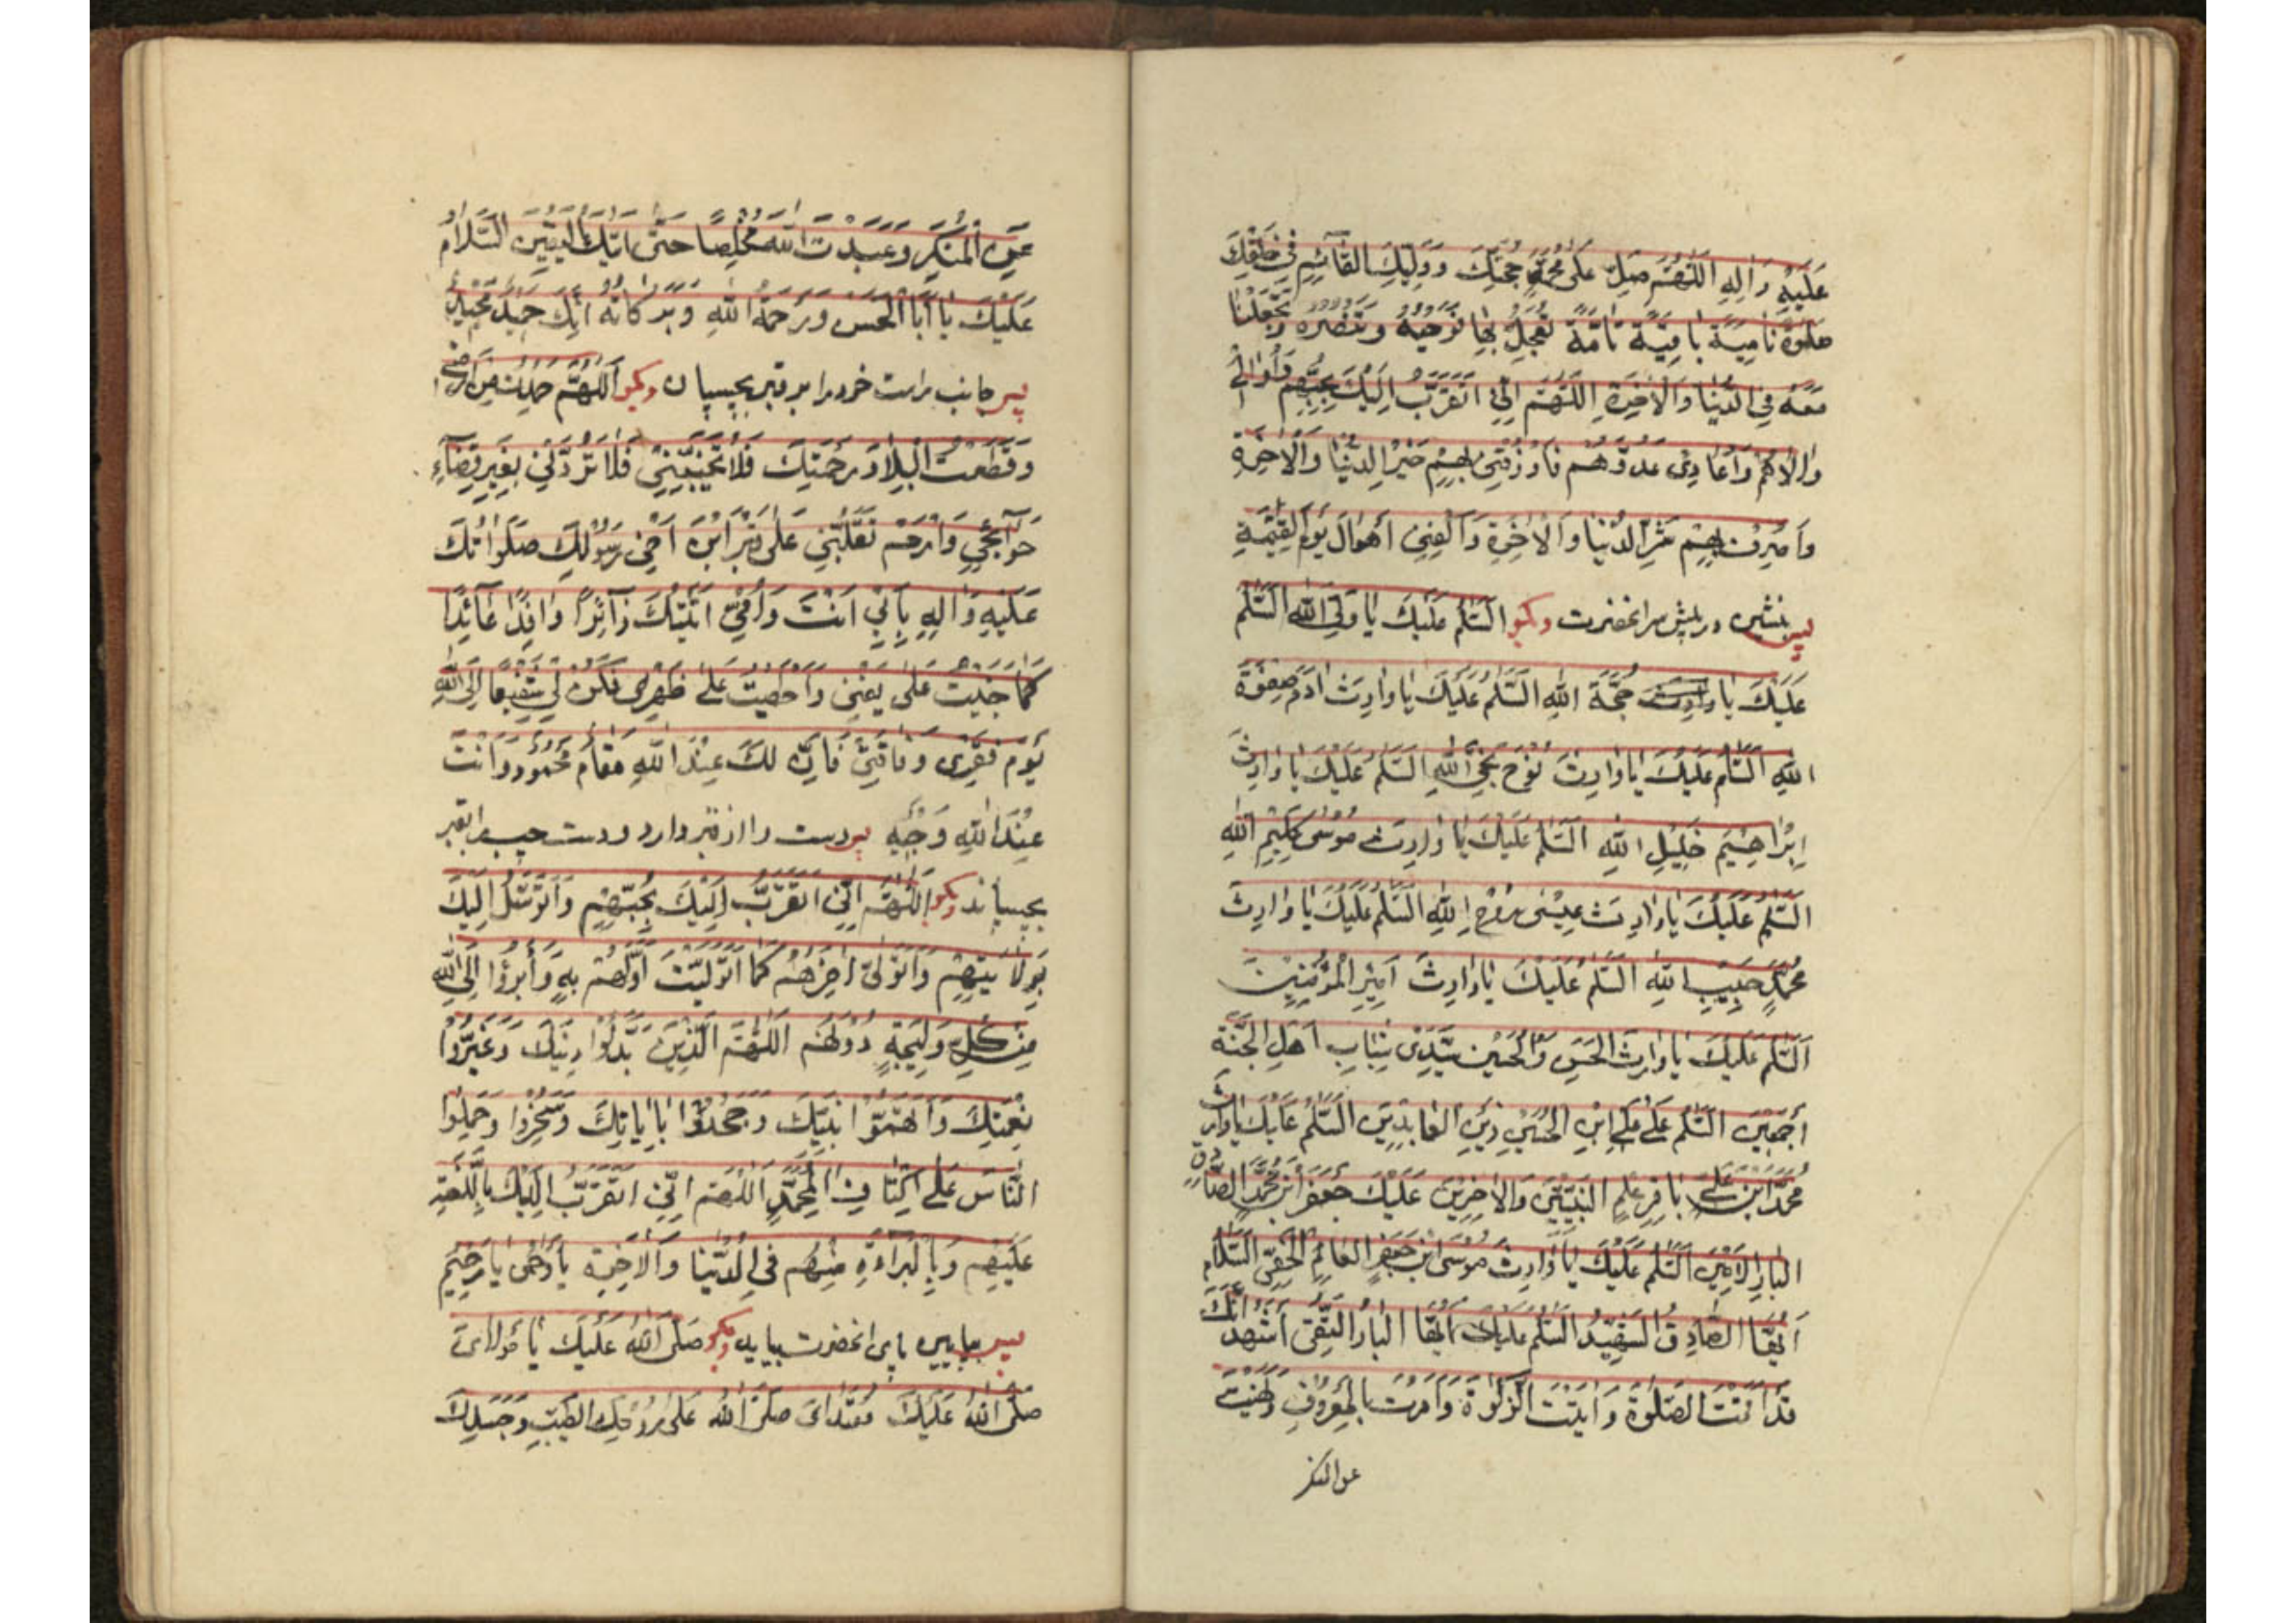 عَلَيْهِ وَالِهِ اَللّٰهُمَّ صَلِّ عَلٰى حُجَّتِكَ وَوَلِيِّكَ القَآئِمِ فِى خَلْقِكَ
صَلٰوةً نَامِيَةً بَاقِيَةً تَامَّةً تُعَجِّلُ بِهَا فَرَجَهُ وَتَنْصُرُهُ وَتَجْعَلْنَا
مَعَهُ فِى الدُّنْيَا وَالْاخِرَةِ اَللّٰهُمَّ اِنِّى اَتَقَرَّبُ اِلَيْكَ بِحُبِّهِمْ وَاُوَالِى
وَاُعَادِى عَدُوَّهُمْ فَارْزُقْنِى بِهِمْ خَيْرَ الدُّنْيَا وَالْاخِرَةِ
وَاصْرِفْ بِهِمْ شَرَّ الدُّنْيَا وَالْاخِرَةِ وَاكْفِنِى اَهْوَالَ يَوْمِ الْقِيٰمَةِ
پس بنشین در پیش سر انحضرت وبگو السَّلٰمُ عَلَيْكَ يَا وَلِىَّ اللهِ السَّلٰمُ
عَلَيْكَ يَا حُجَّةَ اللهِ السَّلٰمُ عَلَيْكَ يَا وَارِثَ ادَمَ صِفْوَةِ
اللهِ السَّلٰمُ عَلَيْكَ يَا وَارِثَ نُوْحٍ نَجِىِّ اللهِ السَّلٰمُ عَلَيْكَ يَا وَارِثَ
اِبْرَاهِيْمَ خَلِيْلِ اللهِ السَّلٰمُ عَلَيْكَ يَا وَارِثَ مُوْسٰى كَلِيْمِ اللهِ
السَّلٰمُ عَلَيْكَ يَا وَارِثَ عِيْسٰى رُوْحِ اللهِ السَّلٰمُ عَلَيْكَ يَا وَارِثَ
مُحَمَّدٍ حَبِيْبِ اللهِ السَّلٰمُ عَلَيْكَ يَا وَارِثَ اَمِيْرِ الْمُؤْمِنِيْنَ
اَلسَّلٰمُ عَلَيْكَ يَا وَارِثَ الْحَسَنِ وَالْحُسَيْنِ سَيِّدَىْ شَبَابِ اَهْلِ الْجَنَّةِ
اَجْمَعِيْنَ السَّلٰمُ عَلٰى عَلِىِّ ابْنِ الْحُسَيْنِ زَيْنِ الْعَابِدِيْنَ السَّلٰمُ عَلَيْكَ يَا وَارِثَ
مُحَمَّدِ ابْنِ عَلِىٍّ بَاقِرِ عِلْمِ النَّبِيِّيْنَ وَالْاخِرِيْنَ عَلَيْكَ جَعْفَرِ ابْنِ مُحَمَّدٍ الصَّادِقِ
الْبَارِّ الْاَمِيْنِ السَّلٰمُ عَلَيْكَ يَا وَارِثَ مُوْسَى ابْنِ جَعْفَرٍ الْعَالِمِ السَّلَامُ
اَيُّهَا الصَّادِقُ الشَّهِيْدُ السَّلٰمُ عَلَيْكَ اَيُّهَا الْبَارُّ التَّقِىُّ اَشْهَدُ اَنَّكَ
قَدْ اَقَمْتَ الصَّلٰوةَ وَاتَيْتَ الزَّكٰوةَ وَاَمَرْتَ بِالْمَعْرُوْفِ وَنَهَيْتَ
عن المنكر
عَنِ الْمُنْكَرِ وَعَبَدْتَ اللهَ مُخْلِصًا حَتّٰى اَتٰيكَ الْيَقِيْنُ اَلسَّلَامُ
عَلَيْكَ يَا اَبَا الْحَسَنْ وَرَحْمَةُ اللهِ وَبَرَكَاتُهُ اِنَّكَ حَمِيْدٌ مَجِيْدٌ
پس جانب راست خود را بر قبر بچسپان وبگو اَللّٰهُمَّ اِلَيْكَ مِنْ اَرْضِى
وَقَطَعْتُ الْبِلَادَ رَحْمَتِكَ فَلَا تُخَيِّبْنِى فَلَا تَرُدَّنِى بِغَيْرِ قَضَآءِ
حَوَآئِجِى وَارْحَمْ تَقَلُّبِى عَلٰى قَبْرِ ابْنِ اَخِى رَسُوْلِكَ صَلَوَاتُكَ
عَلَيْهِ وَالِهِ بِاَبِى اَنْتَ وَاُمِّى اَتَيْتُكَ زَآئِرًا وَافِدًا عَآئِذًا
جَنَيْتُ عَلٰى نَفْسِى عَلٰى ظَهْرِى فَكُنْ لِى شَفِيْعًا اِلَى اللهِ
يَوْمَ فَقْرِى وَفَاقَتِى فَاِنَّ لَكَ عِنْدَ اللهِ مَقَامٌ مَحْمُوْدٌ وَاَنْتَ
عِنْدَ اللهِ وَجِيْهٌ پس دست را از قبر دارد ودست چپ را بقبر
بچسپاند وبگو اَللّٰهُمَّ اِنِّى اَتَقَرَّبُ اِلَيْكَ بِحُبِّهِمْ وَاَتَوَسَّلُ اِلَيْكَ
بِوِلَايَتِهِمْ وَاَتَوَلّٰى اخِرَهُمْ كَمَا تَوَلَّيْتُ اَوَّلَهُمْ بِهِ وَاَبْرَؤُا اِلَى اللهِ
مِنْ كُلِّ وَلِيْجَةٍ دُوْنَهُمْ اَللّٰهُمَّ الَّذِيْنَ بَدَّلُوْا دِيْنَكَ وَغَيَّرُوْا
نِعْمَتَكَ وَاتَّهَمُوْا نَبِيَّكَ وَجَحَدُوْا بِايَاتِكَ وَسَخِرُوْا وَحَمَلُوْا
النَّاسَ عَلٰى اَكْتَافِ الِ مُحَمَّدٍ اَللّٰهُمَّ اِنِّى اَتَقَرَّبُ اِلَيْكَ بِاللَّعْنَةِ
عَلَيْهِمْ وَبِالْبَرَاءَةِ مِنْهُمْ فِى الدُّنْيَا وَالْاخِرَةِ يَا رَحْمٰنُ يَا رَحِيْمُ
پس بپایین پای انحضرت بیاید وبگو صَلَّى اللهُ عَلَيْكَ يَا مَوْلَاىَ
صَلَّى اللهُ عَلَيْكَ صَلَّى اللهُ عَلٰى رُوْحِكَ الطَّيِّبِ وَجَسَدِكَ